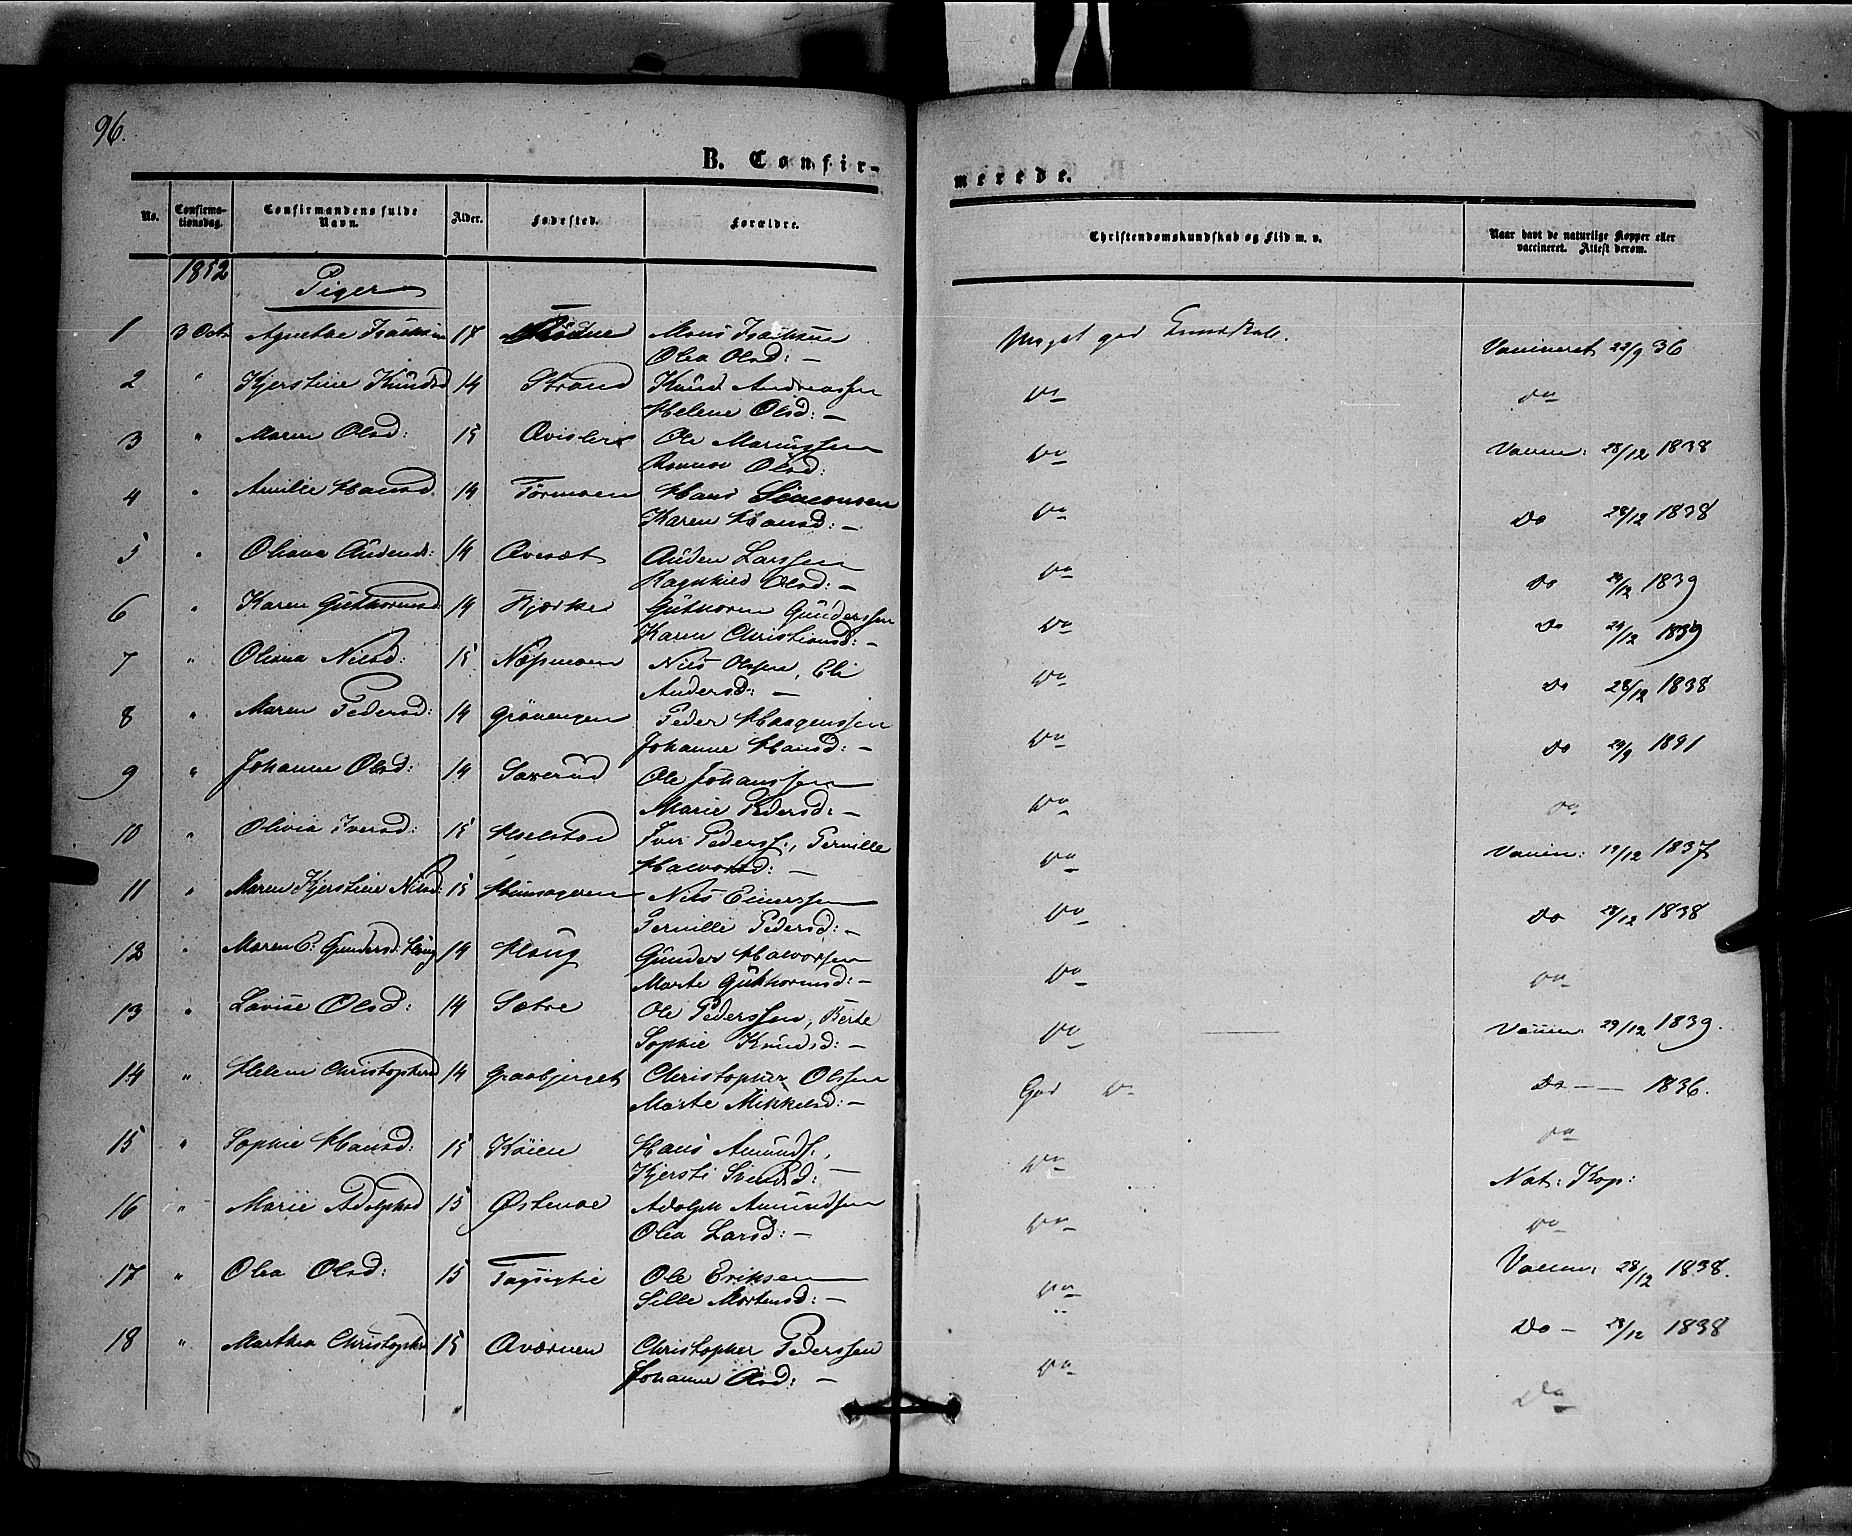 96.
B. Confir-
merede.
No.
Confirma-
tionsdag.
Confirmandens fulde
Navn.
Alder.
Fødested.
Forældre.
Christendomskundskab og Flid m. v.
Naar havt de naturlige Kopper eller
vaccineret. Attest derom.
1852
Piger
1 3 Octr Agnethe 17 Mons
Olea Olsd: —
Meget god Kundskab. Vaccineret 22/9 36
2 " Kjerstine Knudsd 14 Strand Knud Andreassen
Helene Olsd: —
Do Do
3 " Maren Olsd: 15 Ole
Olsd:
Do Vaccin: 28/12 1838
4 " Amilie Hansd. 14 Tørmoen Hans Simensen
Karen Hansd: —
Do Do 28/12 1838
5 " Oliana Audensd: 14 Auden Larssen
Ragnhild Olsd: —
Do Do 29/12 1839
6 " Karen Guthormsd 14 Bjærke Guthorm Gunderssen
Karen Christiansd: —
Do Do 29/12 1839
7 " Oliana Nilsd: 15 Næsmoen Nils Olssen, Eli
Andersd: —
Do Do 28/12 1838
8 " Maren Pedersd: 14 Grönengen Peder Haagenssen
Johanne Hansd: —
Do Do 29/9 1841
9 " Johanne Olsd: 14 Saxerud Ole Johanssen
Marie Pedersd: —
Do Do
10 " Olivia Iversd: 15 Iver Pederss., Pernille
Halvorsd: —
Do Vaccin: 19/12 1837
11 " Maren Kjerstine Nilsd: 15 Nils Einerssen
Pernille Pedersd: —
Do Do 28/12 1838
12 " Maren E: Gundersd: Haug 14 Haug Gunder Halvorsen
Marte Guthormsd: —
Do Do
13 " Lovise Olsd: 14 Sætre Ole Pederssen, Berte
Sophie Knudsd: —
Do Vaccin: 29/12 1839.
14 " Helene Christophersd 14 Graabjerget Christopher Olssen
Marte Mikkelsd: —
God Do Do — — 1836.
15 " Sophie Hansd: 15 Köien Hans Amunds.,
Kjersti Svendsd: —
Do Do
16 " Marie Adolphsd 15 Østenoe Adolph Amundssen
Olea Larsd: —
Nat: Kop:
Do Do
17 " Olea Olsd: 15 Ole Eriksen
Sille Mortensd: —
Do Vaccin: 28/12 1838.
18 " Marthea Christophsd 15 Christopher Pederssen
Johanne Olsd: —
Do Do — 28/12 1838
Do